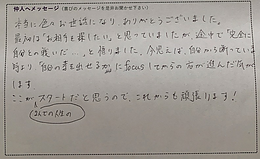 仲人へメッセージ（喜びのメッセージを是非お聞かせ下さい）
本当に色々お世話になり ありがとうございました。
最初は「お相手を探したい。」と思っていましたが、途中で「完全に
自分との戦いだ…」と悟りました。今思えば、自分から断っている
時より、「自分の素を出せるか」に focusしてからの方が進んだ気が
します。
ここがスタートだと思うので、これからも頑張ります！
2人での人生の